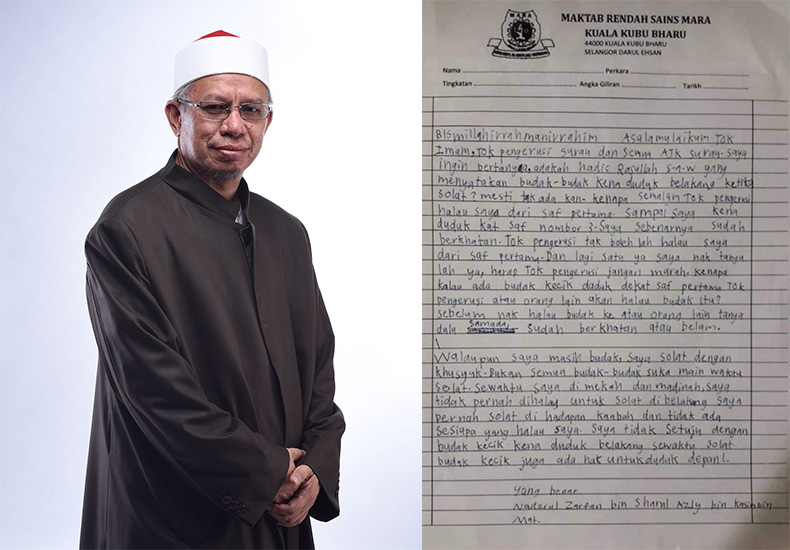 MARA
MAKTAB RENDAH SAINS MARA
KUALA KUBU BHARU
44000 KUALA KUBU BHARU
SELANGOR DARUL EHSAN
Nama Perkara
Tingkatan Angka Giliran Tarikh
Bismillahirrahmanirrahim Asalamulaikum Tok
Imam, Tok pengerusi surau dan Semua AJK surau. Saya
ingin bertanya, adakah hadis Rasullah S.a.w yang
menyatakan budak-budak kena duduk belakang ketika
solat? mesti tak ada kan. kenapa semalam Tok pengerusi
halau saya dari saf pertama. Sampai saya kena
duduk kat Saf nombor 3. Saya Sebenarnya Sudah
berkhatan. Tok pengerusi tak boleh lah halau saya
dari saf pertama. Dan lagi satu ya saya nak tanya
lah ya, harap Tok pengerusi jangan marah. kenapa
kalau ada budak kecik duduk dekat saf pertama Tok
pengerusi atau orang lain akan halau budak itu?
sebelum nak halau budak ke atau orang lain tanya
dulu samada, Sudah berkhatan atau belum.
Walaupun saya masih budak, saya solat dengan
khusyuk. Bukan semua budak-budak suka main waktu
solat. Sewaktu saya di mekah dan madinah, saya
tidak pernah dihalau untuk solat di belakang saya
pernah solat di hadapan kaabah dan tidak ada
sesiapa yang halau saya. Saya tidak setuju dengan
budak kecik kena duduk belakang sewaktu solat
budak kecik juga ada hak untuk duduk depan!.
Yang benar
Nadzrul Zarean bin Sharul Azly bin Kasin bin
Mat.